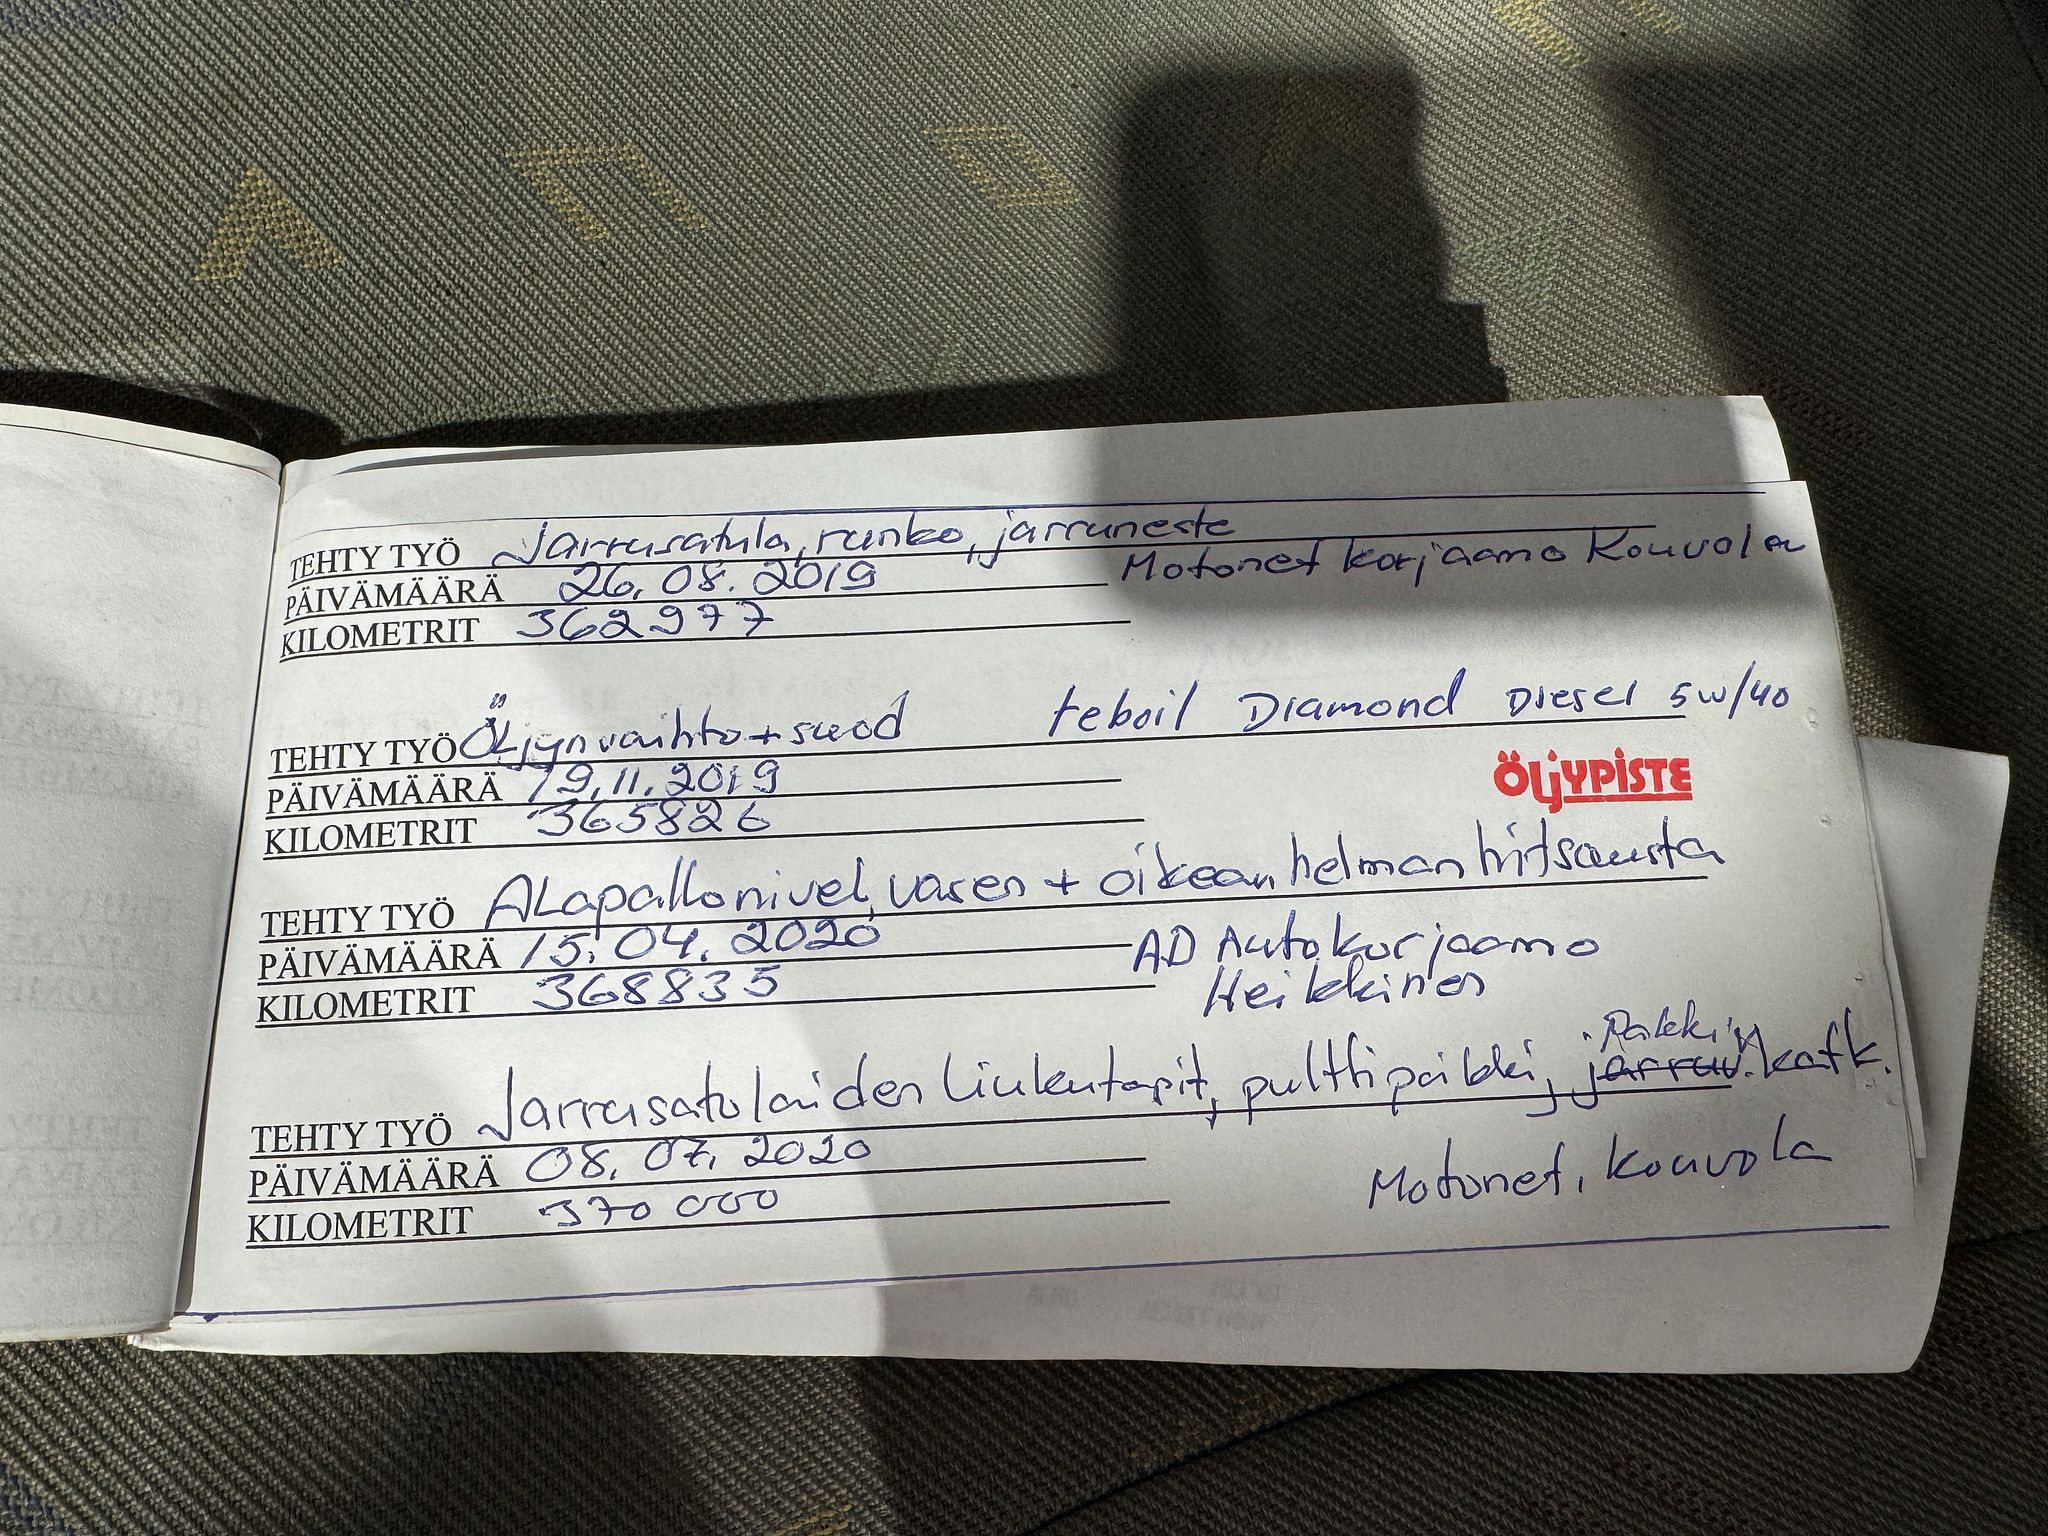 TEHTY TYÖ Jarrusatula, runko, jarruneste
PÄIVÄMÄÄRÄ 26.08.2019 Motonet korjaamo Kouvola
KILOMETRIT 362977
TEHTY TYÖ Öljynvaihto + suod teboil Diamond Diesel 5W/40
PÄIVÄMÄÄRÄ 19.11.2019 ÖljYPISTE
KILOMETRIT 365826
TEHTY TYÖ ALapallonivel, vasen + oikean helman hitsausta
PÄIVÄMÄÄRÄ 15.04.2020 AD Autokorjaamo
KILOMETRIT 368835 Heikkinen
Pakki
TEHTY TYÖ Jarrusatuloiden liukutapit, pulttipaikki, jarruv. katk.
PÄIVÄMÄÄRÄ 08.07.2020 Motonet, Kouvola
KILOMETRIT 370 000